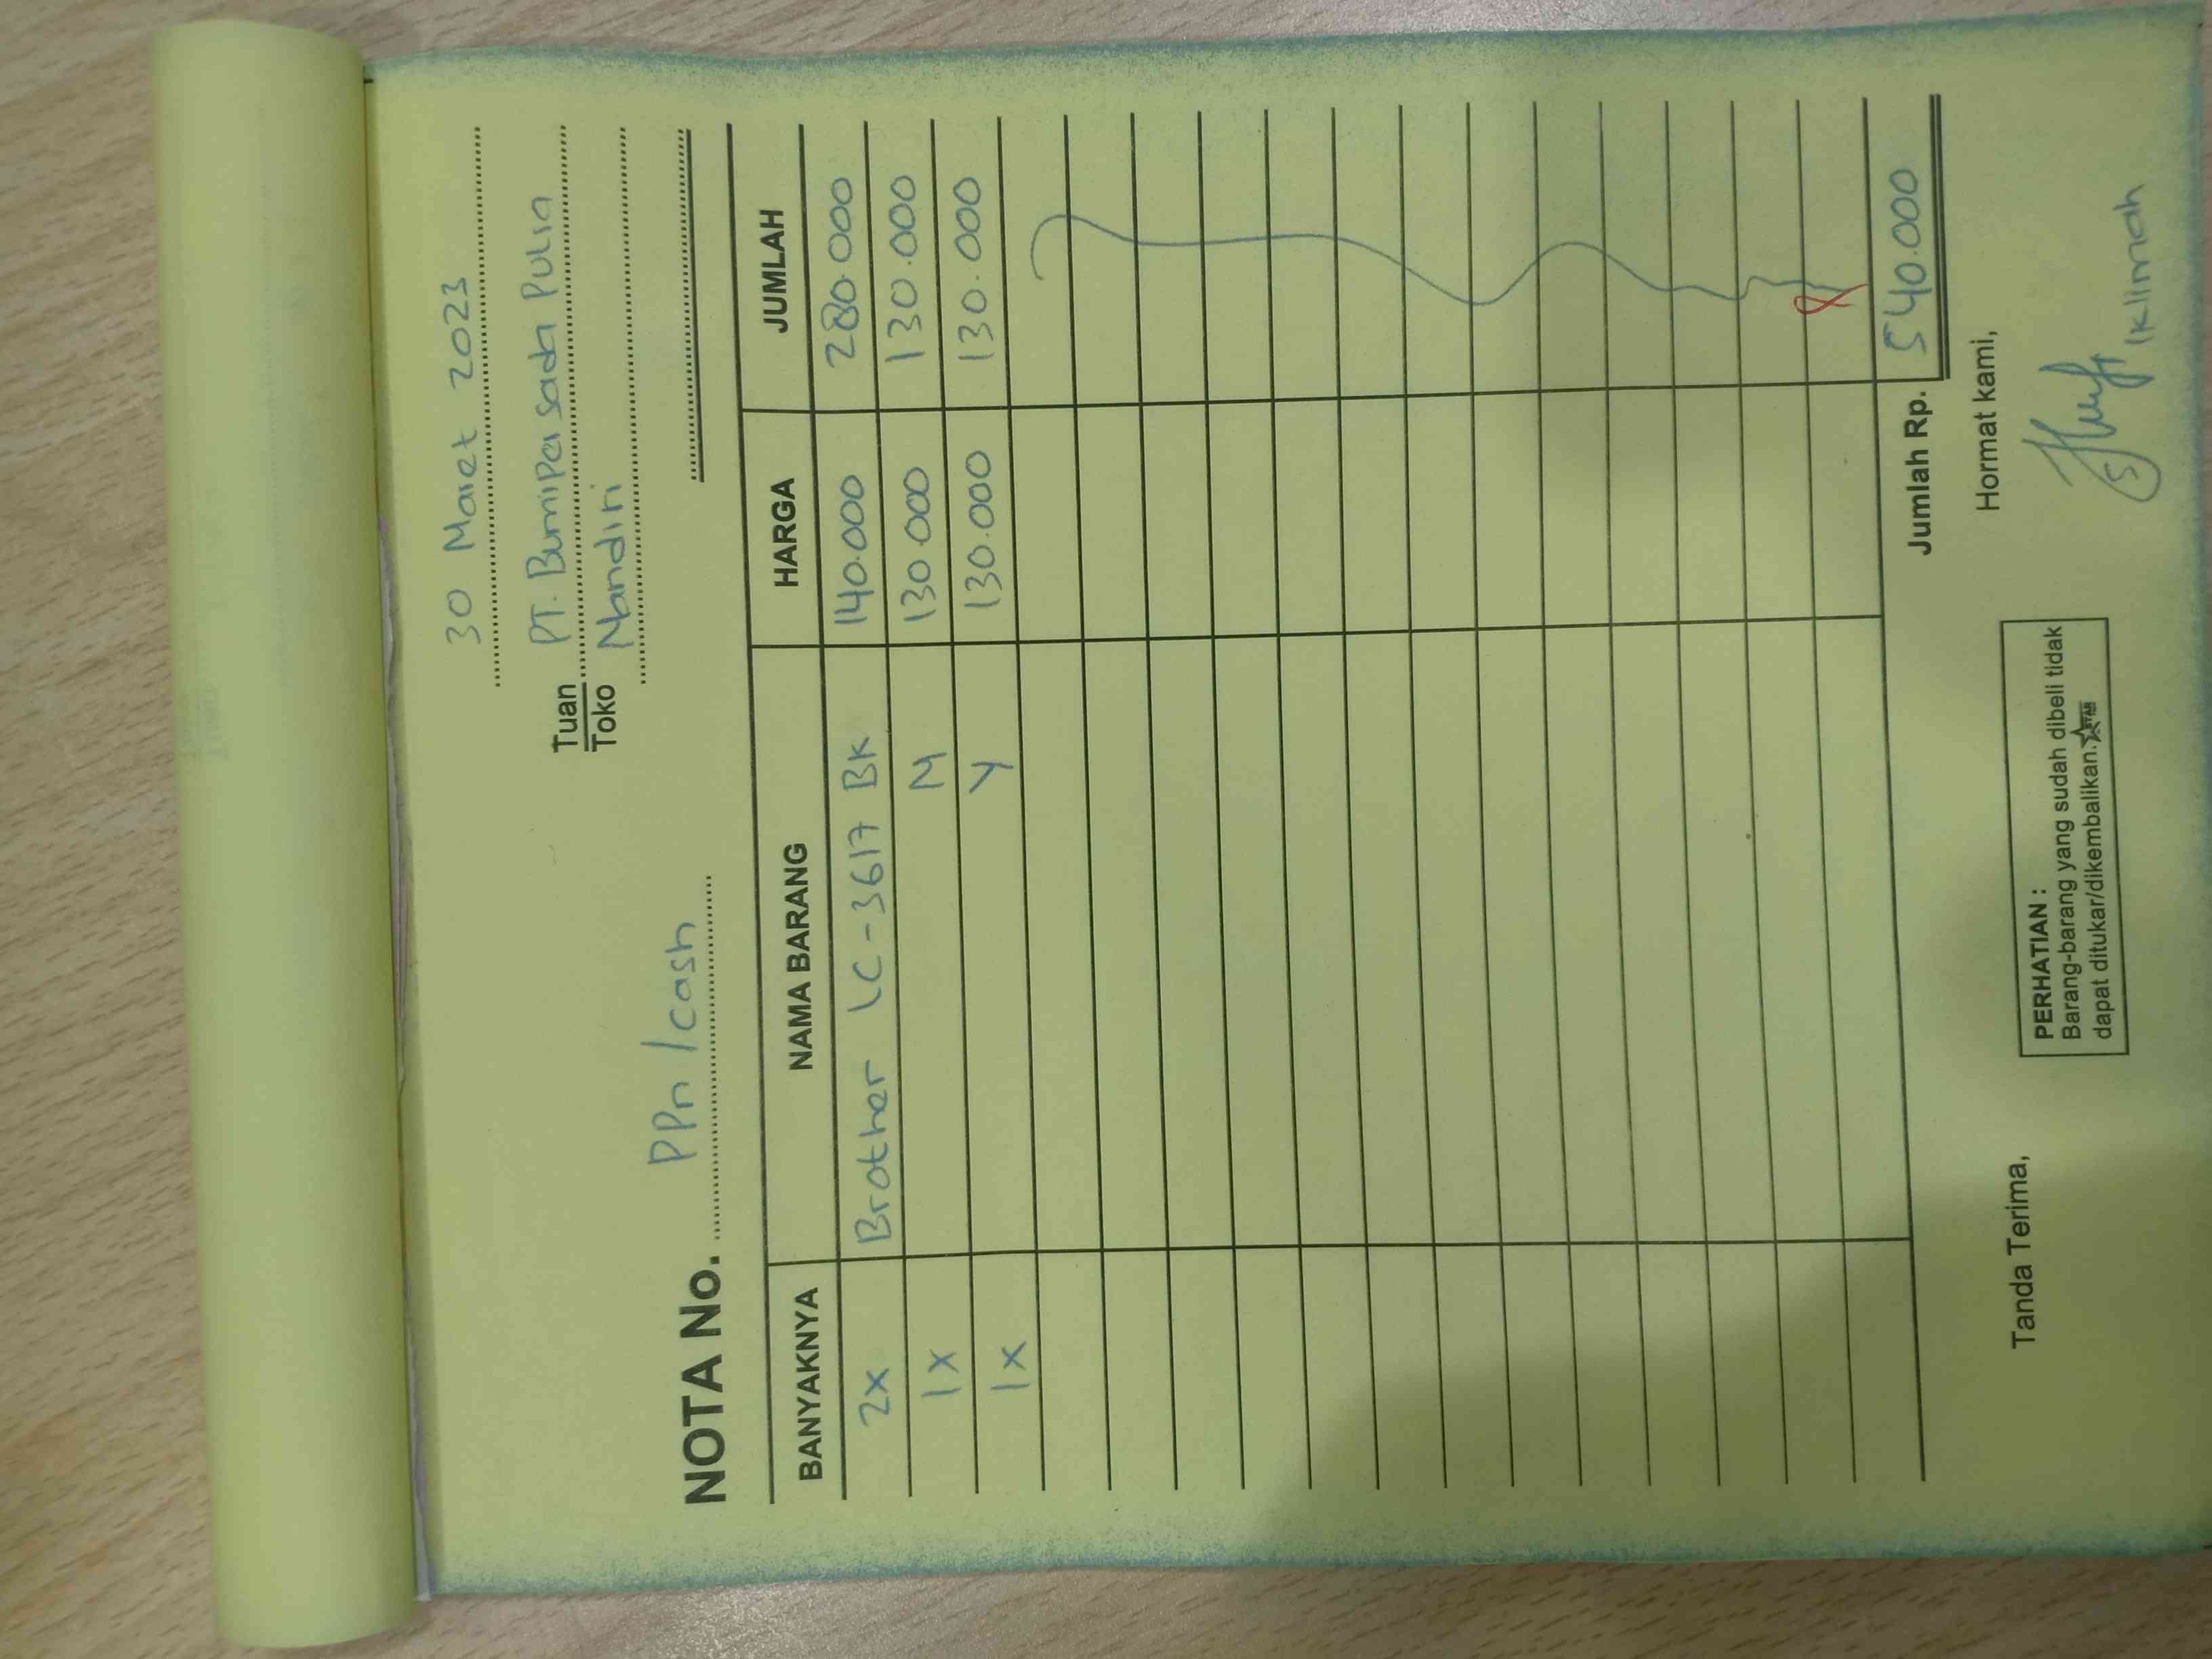 30 Maret 2023
Tuan PT. Bumipersada Pulin
Toko Mandiri
NOTA No. PPn / cash
BANYAKNYA NAMA BARANG HARGA JUMLAH
2x Brother LC-3617 BK 140.000 280.000
1x M 130.000 130.000
1x Y 130.000 130.000
Jumlah Rp. 540.000
Tanda Terima,
PERHATIAN :
Barang-barang yang sudah dibeli tidak
dapat ditukar/dikembalikan.
Hormat kami,
Iklimah